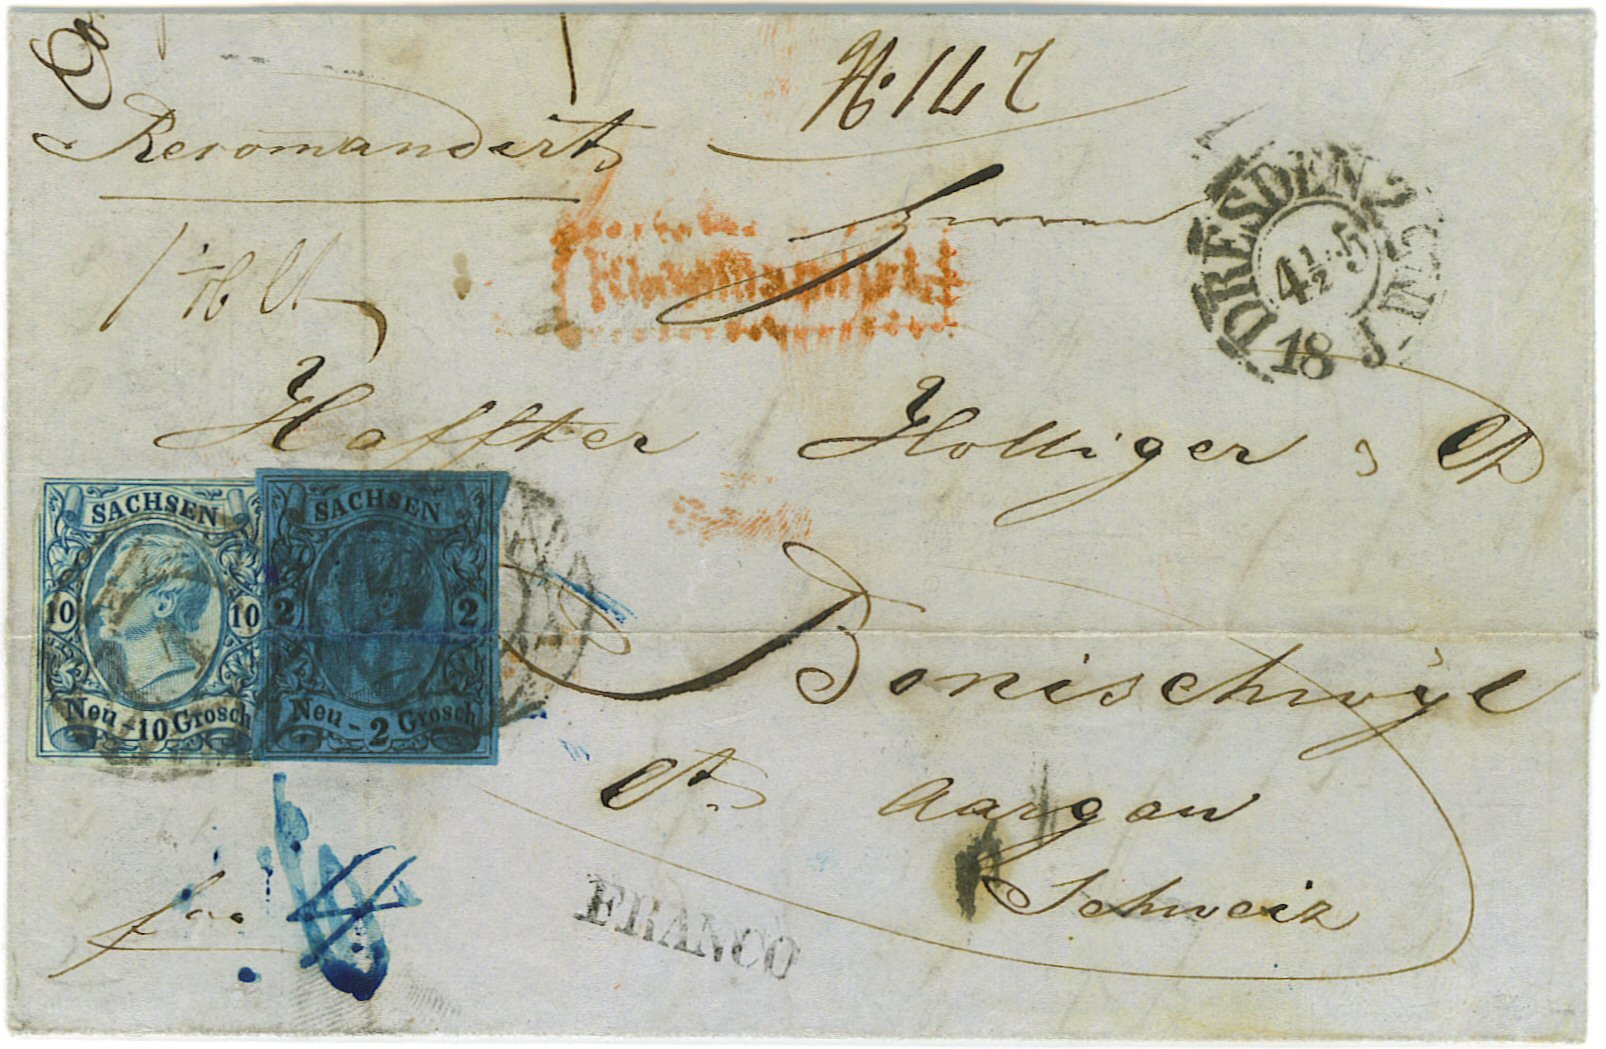 No: 147
Recomandirt
Herren
Recomandirt
DRESDEN
4½-5
18 JUN
Haffter Holliger & Co
SACHSEN
10 10
Neu-10 Grosch
SACHSEN
2 2
Neu-2 Grosch
Bonischwyl
Ct. Aargau
Schweiz
fco
FRANCO